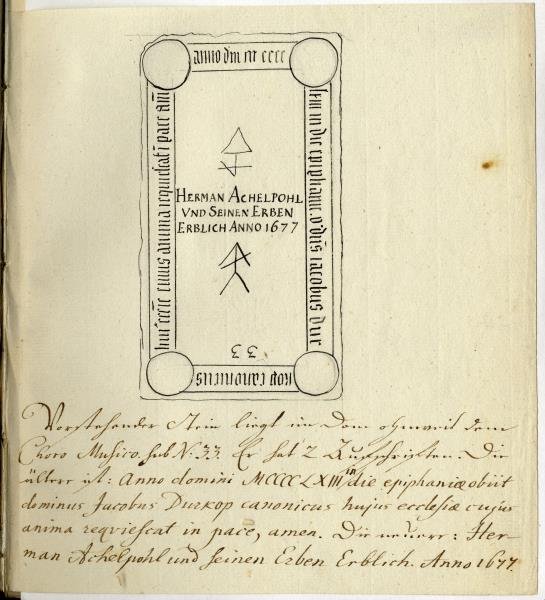 anno dm m cccc
lxiii in die epiphanie o dns iacobus dur
kop canonicus
hui' eccie cuius anima requiescat i pace am
HERMAN ACHELPOHL
VND SEINEN ERBEN
ERBLICH ANNO 1677
33
Vorstehender Stein liegt im Dom ohnweit dem
Choro Musico. sub N: 33. Er hat 2 Innschriften. Die
ältere ist: Anno domini MCCCCLXIII in die epiphaniæ obiit
dominus Jacobus Durkop canonicus hujus ecclesiæ cujus
anima reqviescat in pace, amen. Die neuere: Her-
man Achelpohl und seinen Erben Erblich. Anno 1677.